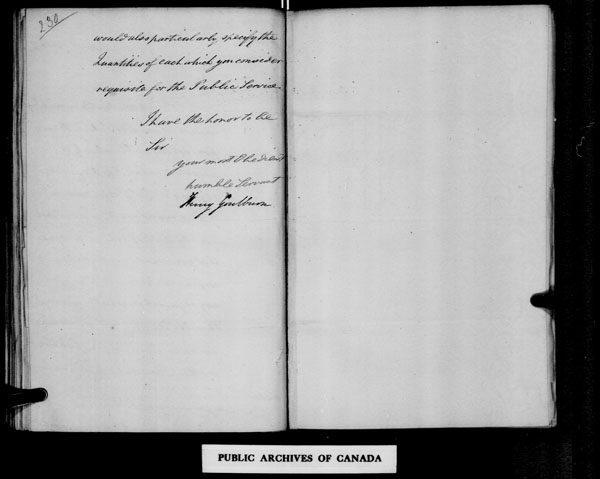 230
would also particularly specify the
Quantities of each which you consider
requisite for the Public Service
I have the honor to be
Sir
your most Obedient
humble Servant
Henry Goulburn
PUBLIC ARCHIVES OF CANADA